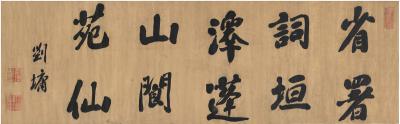 省署
詞垣
澤蓬
山閬
苑仙
劉墉